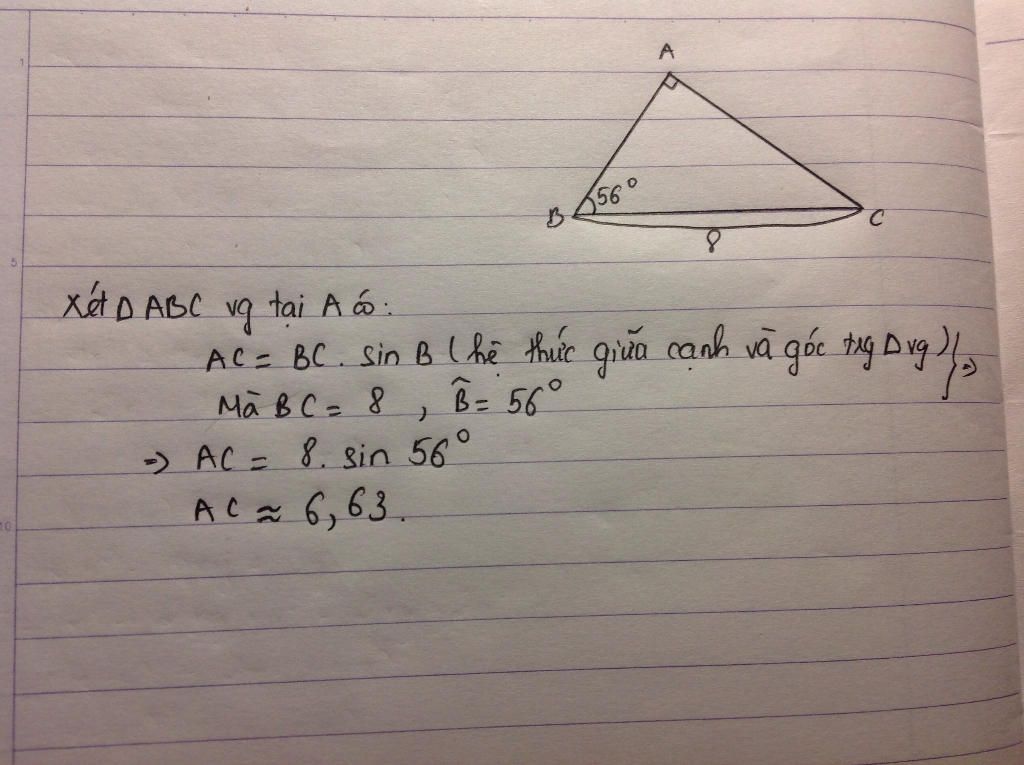 A
56°
B
C
8
1
5
Xét Δ ABC vg tại A có:
AC = BC . sin B (hệ thức giữa cạnh và góc trg Δ vg) } =>
Mà BC = 8 , B̂ = 56°
=> AC = 8. sin 56°
AC ≈ 6,63.
10